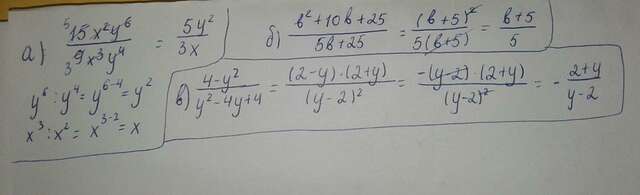 а) ⁵15x²y⁶ / ³9x³y⁴ = 5y² / 3x
y⁶ : y⁴ = y⁶⁻⁴ = y²
x³ : x² = x³⁻² = x
б) (b² + 10b + 25) / (5b + 25) = (b + 5)² / 5(b + 5) = (b + 5) / 5
в) (4 - y²) / (y² - 4y + 4) = (2 - y) · (2 + y) / (y - 2)² = -(y - 2) · (2 + y) / (y - 2)² = - (2 + y) / (y - 2)